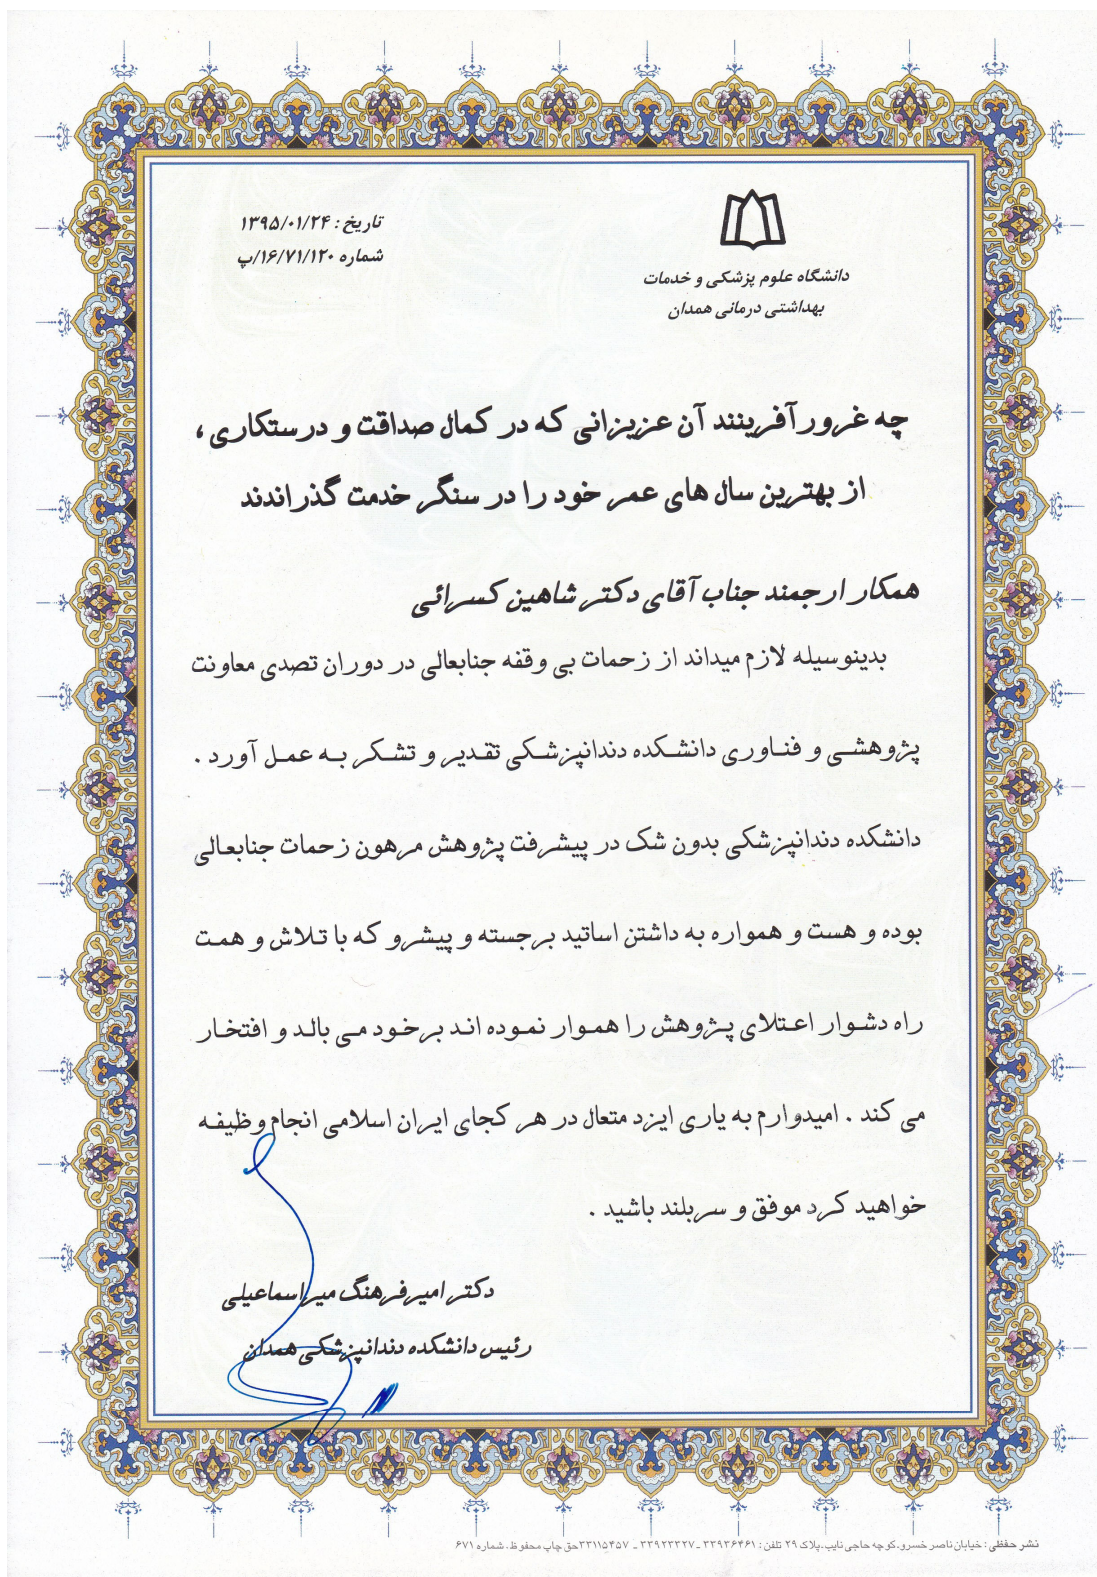 دانشگاه علوم پزشکی و خدمات
بهداشتی درمانی همدان
تاریخ : ۱۳۹۵/۰۱/۲۴
شماره ۱۶/۷۱/۱۲۰/پ
چه غرور آفرینند آن عزیزانی که در کمال صداقت و درستکاری ،
از بهترین سال های عمر خود را در سنگر خدمت گذراندند
همکار ارجمند جناب آقای دکتر شاهین کسرائی
بدینوسیله لازم میداند از زحمات بی وقفه جنابعالی در دوران تصدی معاونت
پژوهشی و فناوری دانشکده دندانپزشکی تقدیر و تشکر به عمل آورد .
دانشکده دندانپزشکی بدون شک در پیشرفت پژوهش مرهون زحمات جنابعالی
بوده و هست و همواره به داشتن اساتید برجسته و پیشرو که با تلاش و همت
راه دشوار اعتلای پژوهش را هموار نموده اند برخود می بالد و افتخار
می کند . امیدوارم به یاری ایزد متعال در هر کجای ایران اسلامی انجام وظیفه
خواهید کرد موفق و سربلند باشید .
دکتر امیرفرهنگ میراسماعیلی
رئیس دانشکده دندانپزشکی همدان
نشر حفظی : خیابان ناصر خسرو.کوچه حاجی نایب.پلاک ۲۹ تلفن : ۳۳۹۳۶۴۶۱ ـ ۳۳۹۲۳۳۲۷ ـ ۳۳۱۱۵۴۵۷حق چاپ محفوظ. شماره ۶۷۱